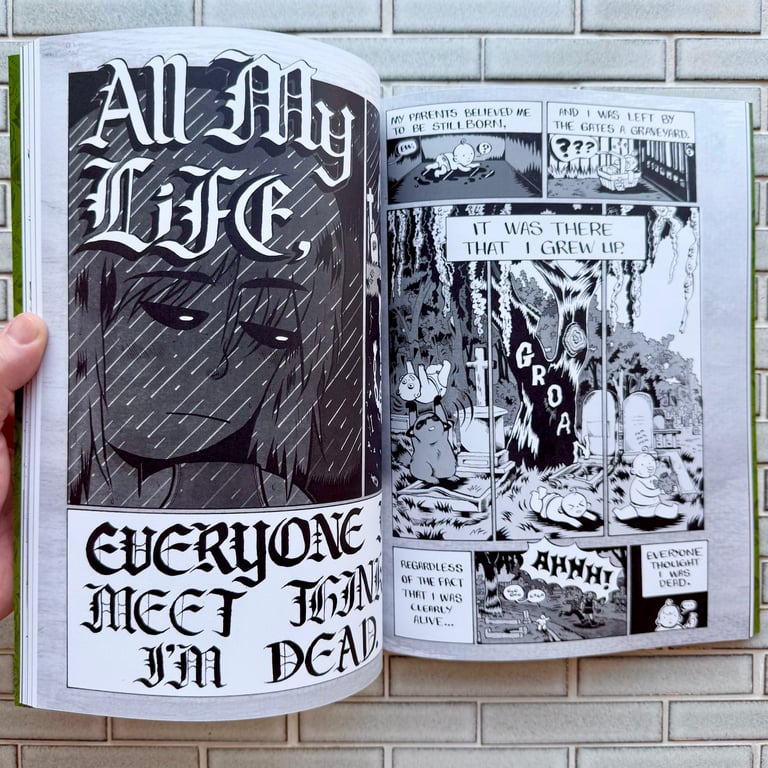 All My
LiFE,
EVERYONE
MEET THINK
I'M DEAD.
MY PARENTS BELIEVED ME
TO BE STILLBORN,
?
AND I WAS LEFT BY
THE GATES A GRAVEYARD.
???
IT WAS THERE
THAT I GREW UP.
GROA
REGARDLESS
OF THE FACT
THAT I WAS
CLEARLY
ALIVE...
AHHH!
EVERYONE
THOUGHT
I WAS
DEAD.